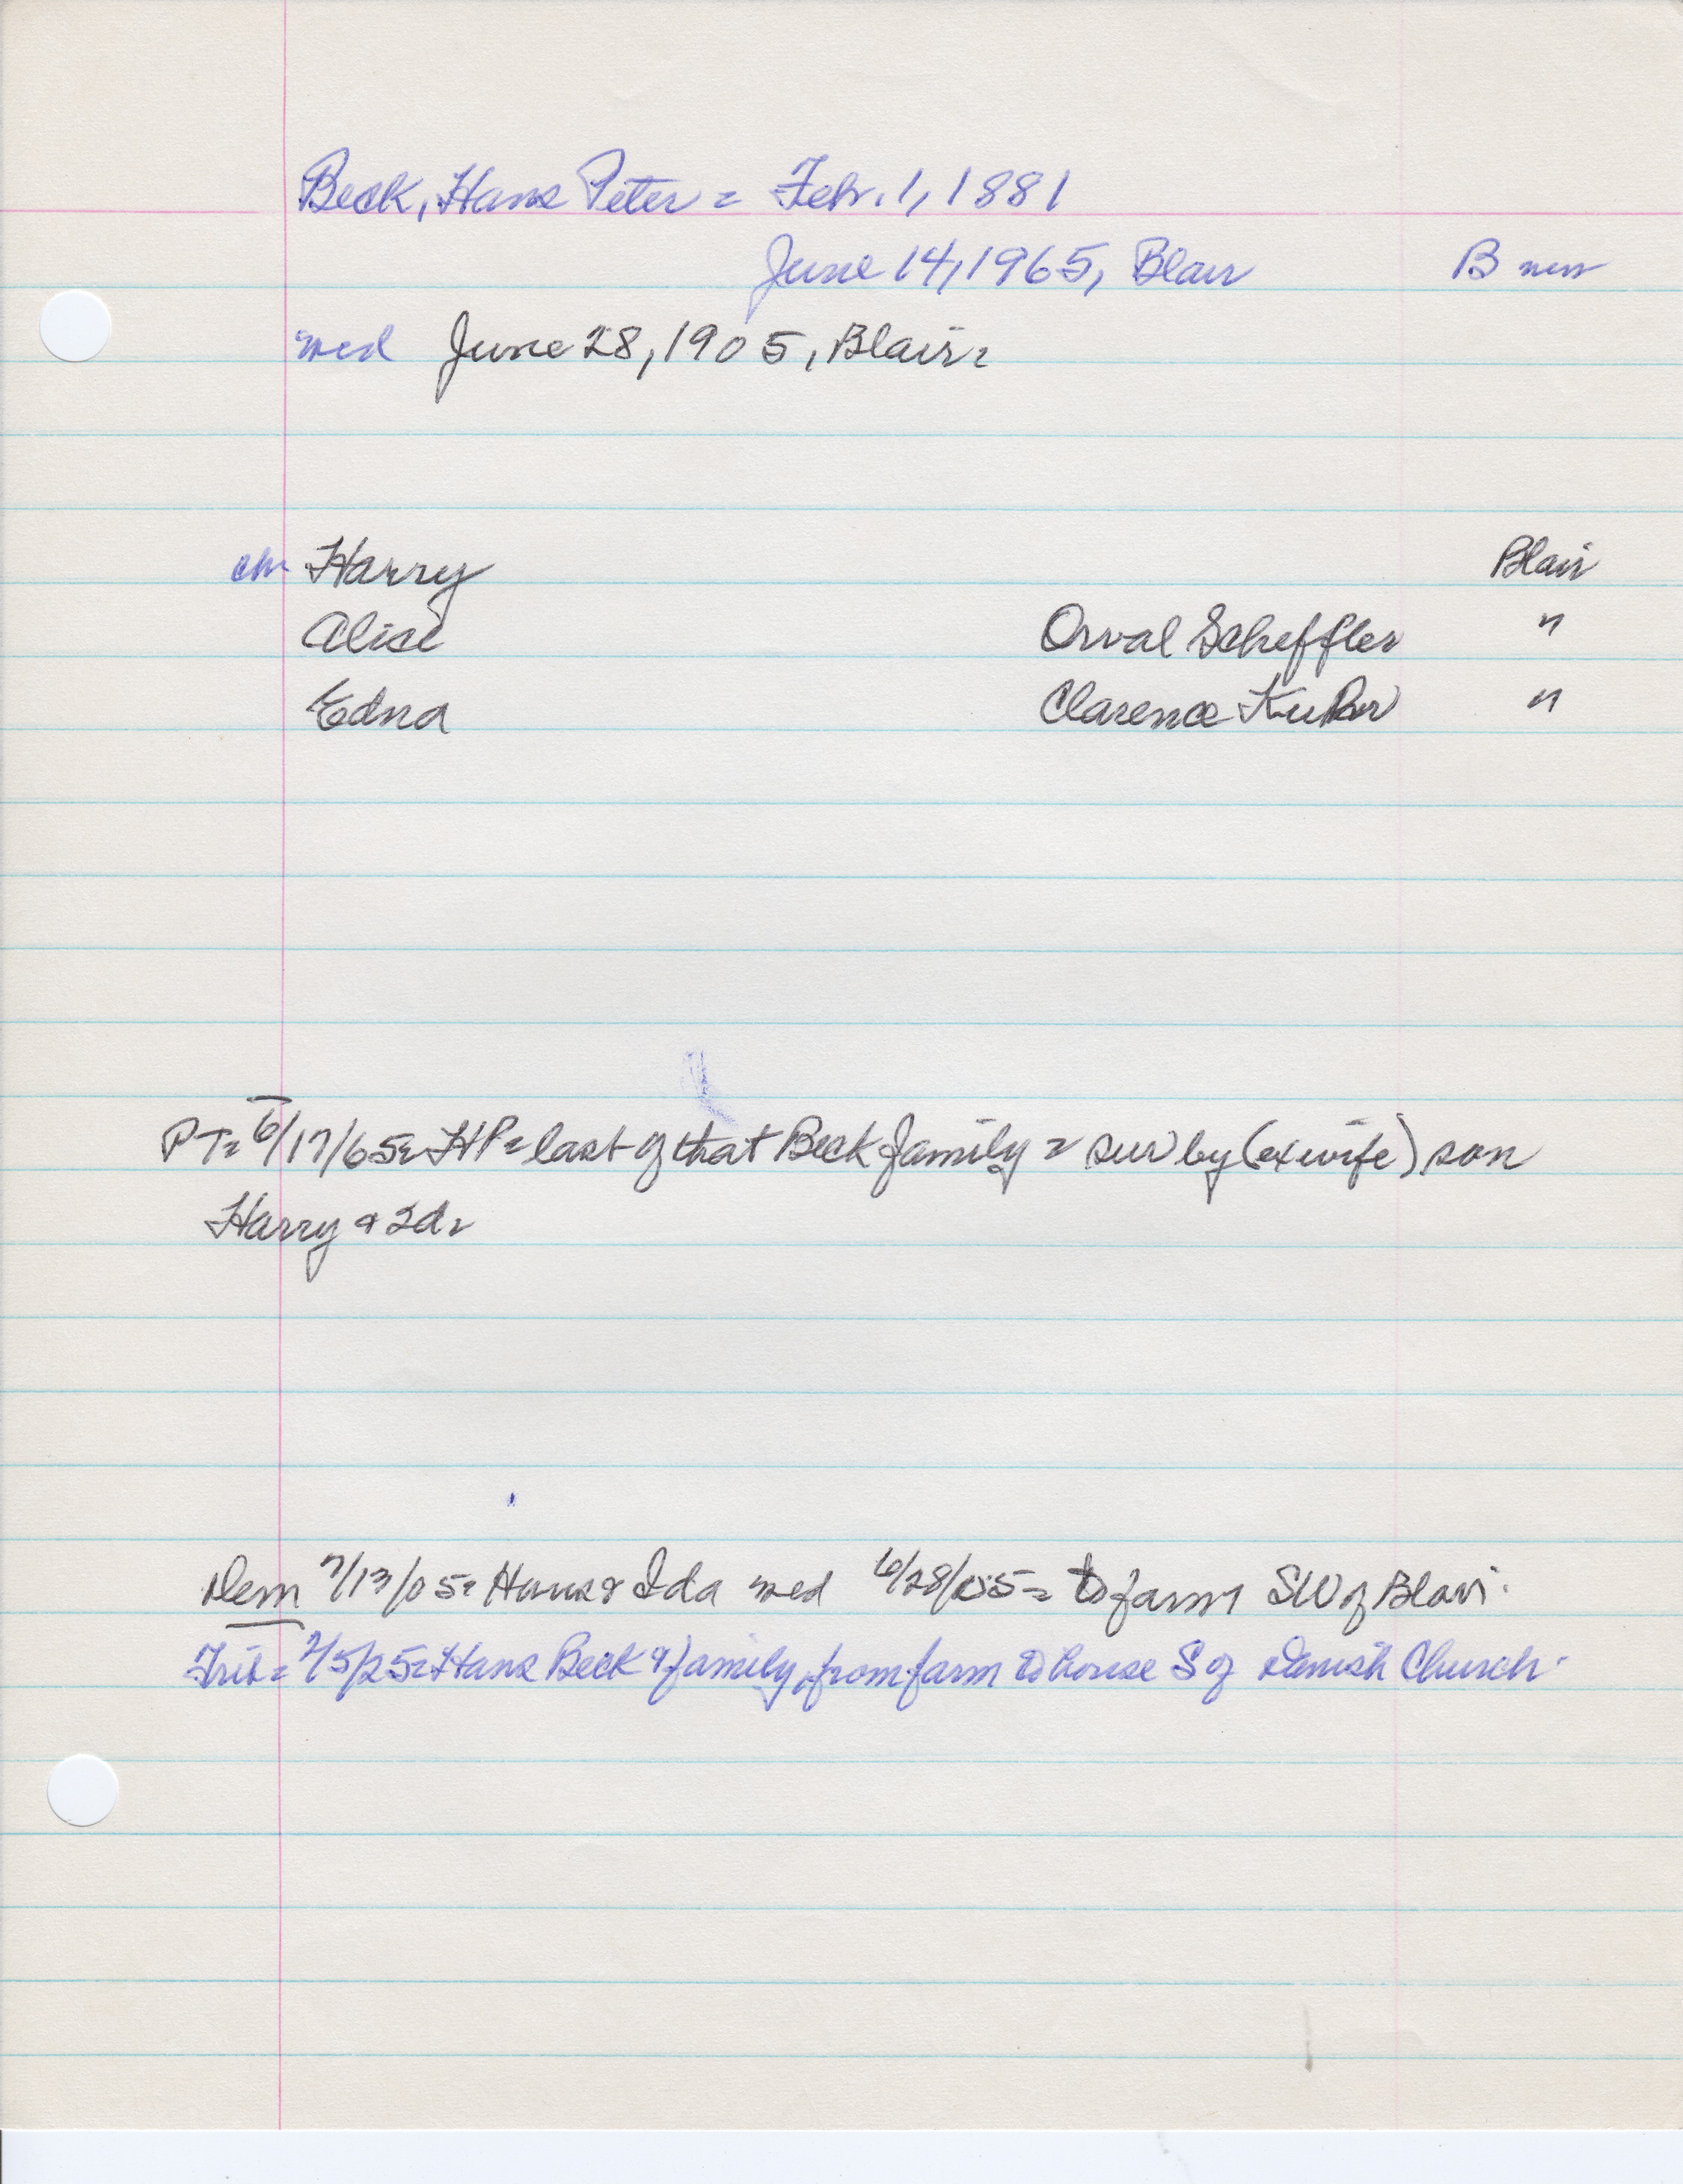 Beck, Hans Peter = Feb. 1, 1881
June 14, 1965, Blair B
med June 28, 1905, Blair =
ch Harry Blair
Alice Orval Scheffler "
Edna Clarence "
PT = 6/17/65 = HP = last of that Beck family = sur by (ex wife) son
Harry & 2d =
Dem 7/13/05 = Hans & Ida med 6/28/05 = to farm SW of Blair.
Trib = 2/5/25 = Hans Beck & family, from farm to house S of Danish Church.